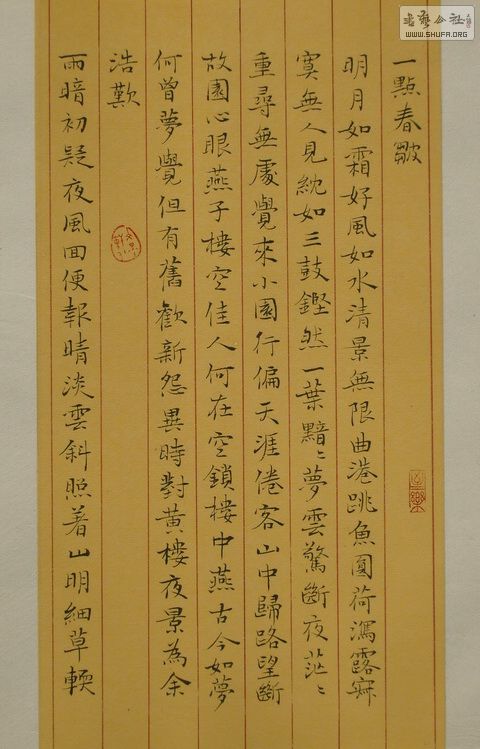 一點春皺
明月如霜好風如水清景無限曲港跳魚圓荷瀉露寂
寞無人見紞如三鼓鏗然一葉黯〻夢雲驚斷夜茫〻
重尋無處覺來小園行徧天涯倦客山中歸路望斷
故園心眼燕子樓空佳人何在空鎖樓中燕古今如夢
何曾夢覺但有舊歡新怨異時對黃樓夜景為余
浩歎
雨暗初疑夜風回便報晴淡雲斜照着山明細草輭
書法公社
WWW.SHUFA.ORG